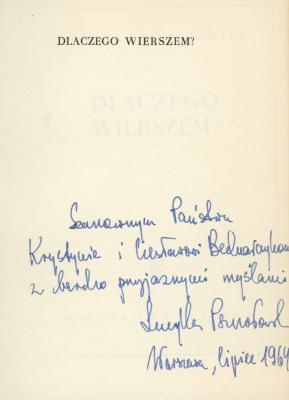 DLACZEGO WIERSZEM?
DLACZEGO
WIERSZEM?
Szanownym Państwu
Krystynie i Czesławowi Bednarczykom
z bardzo przyjaznymi myślami
Lucylla
Warszawa, lipiec 1964